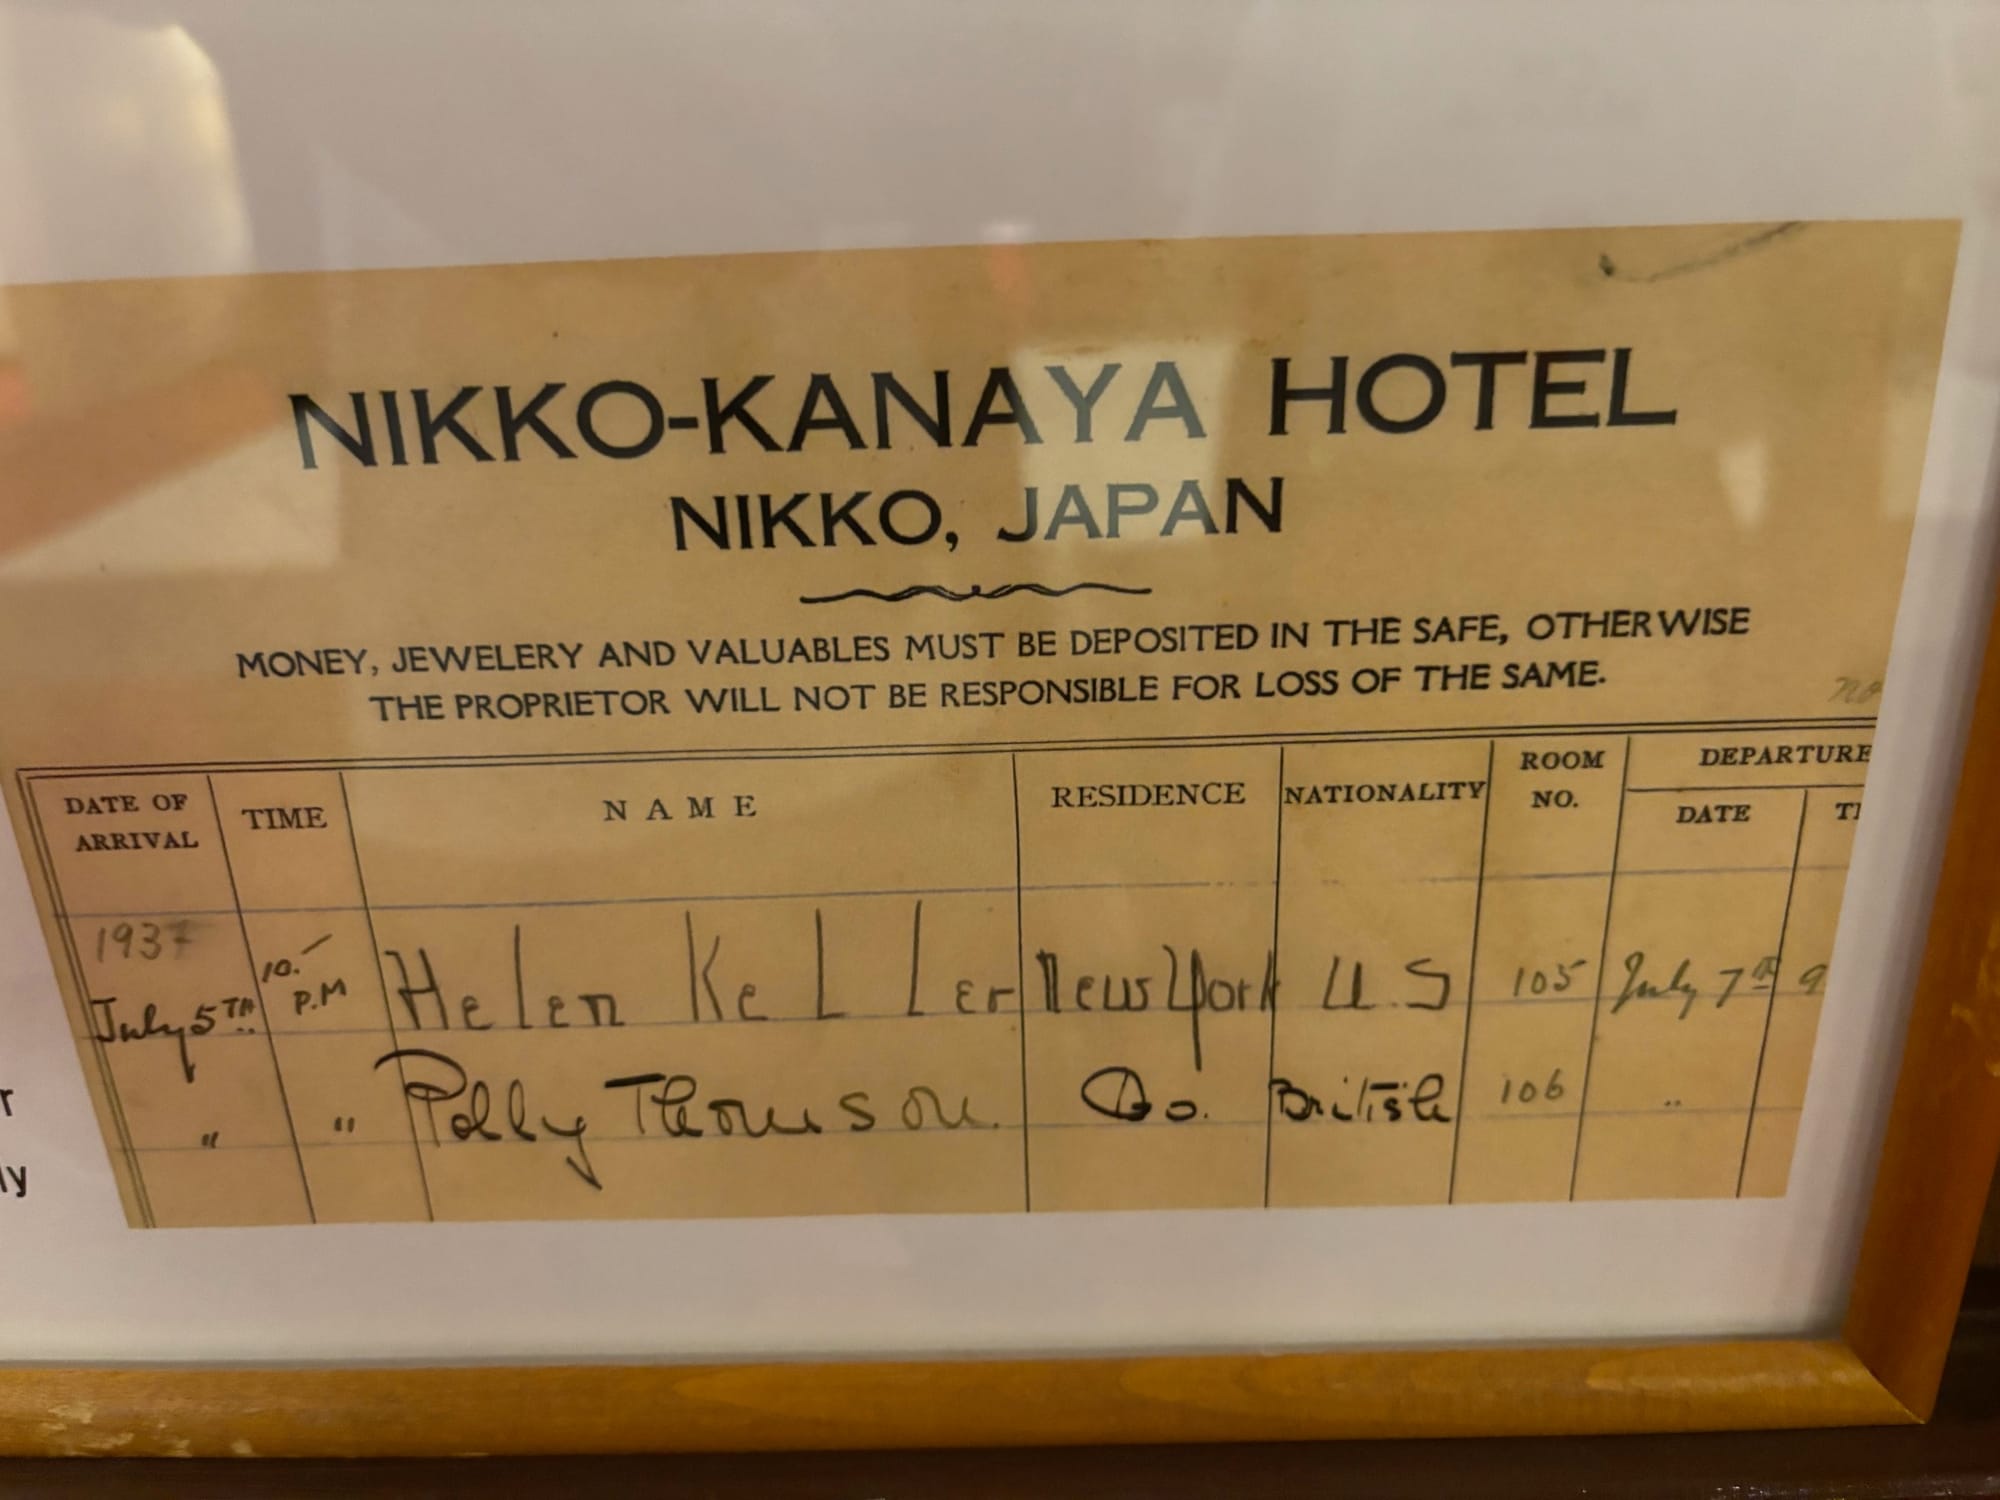 NIKKO-KANAYA HOTEL
NIKKO, JAPAN
MONEY, JEWELERY AND VALUABLES MUST BE DEPOSITED IN THE SAFE, OTHERWISE
THE PROPRIETOR WILL NOT BE RESPONSIBLE FOR LOSS OF THE SAME.
DATE OF ARRIVAL TIME NAME RESIDENCE NATIONALITY ROOM NO. DEPARTURE
DATE
1937
July 5TH 10.- P.M Helen KeLLer New York U.S 105 July 7th 9
" " Polly Thomson. Do. British 106 "
r
ly